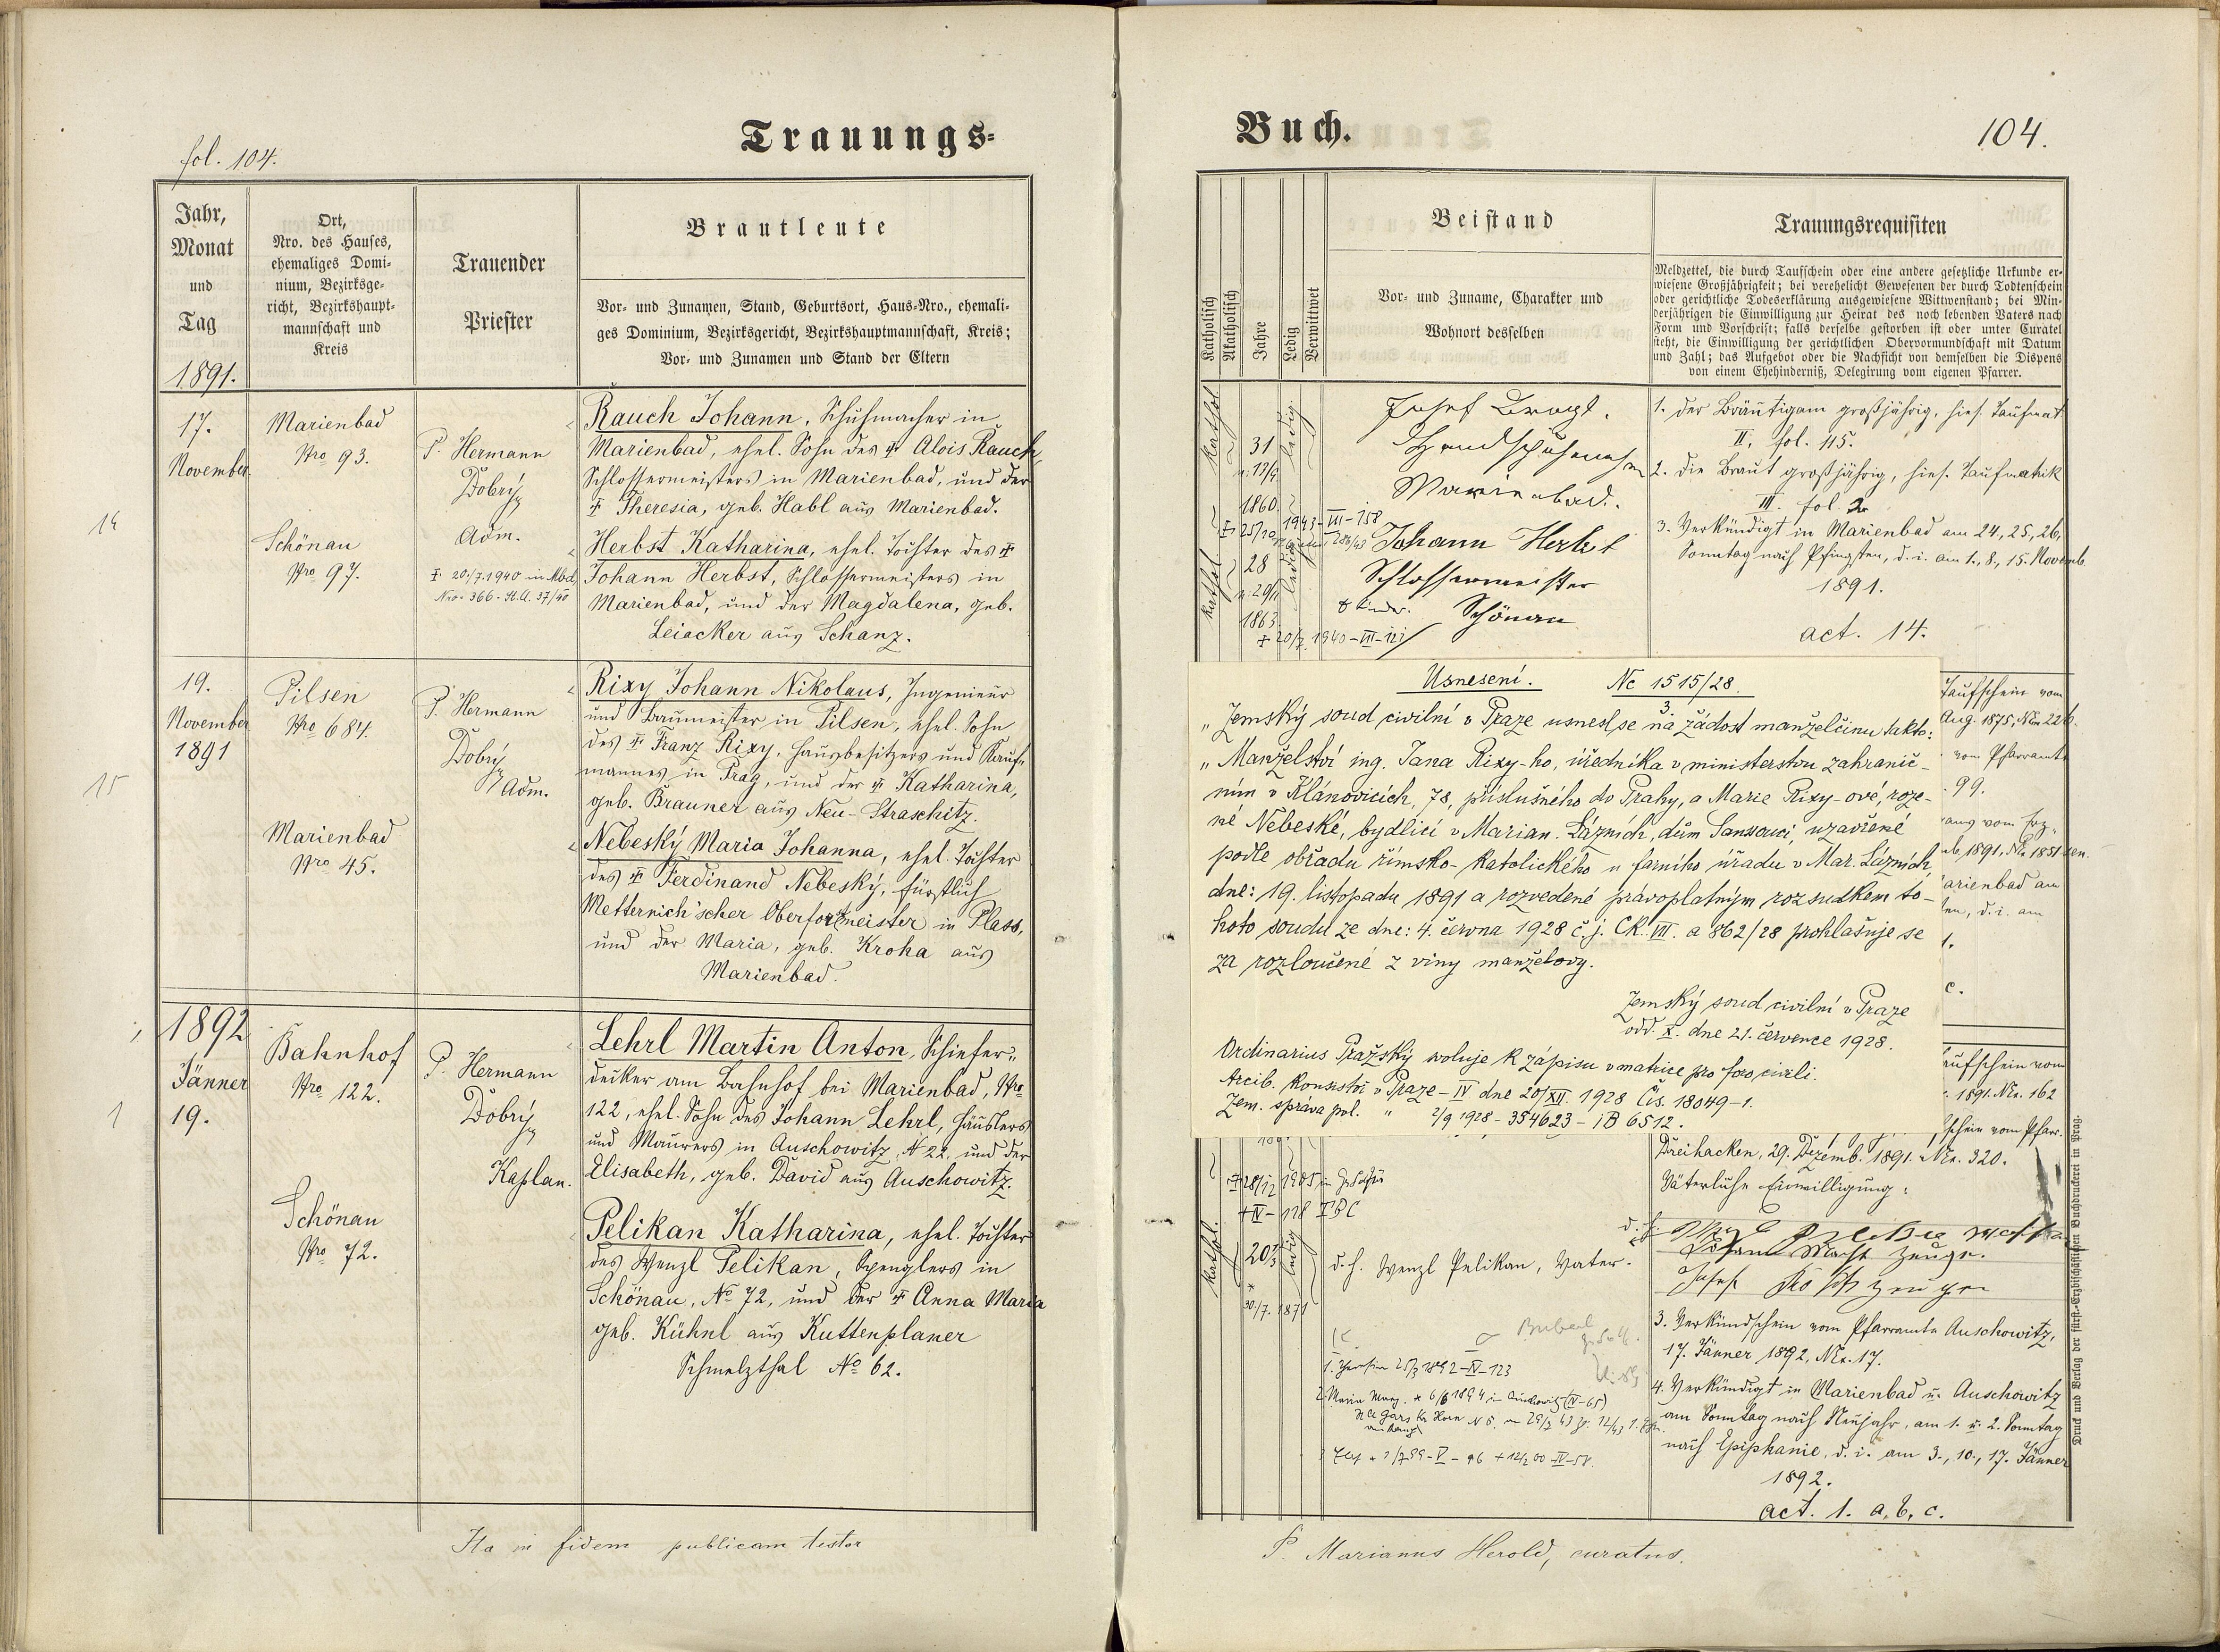 fol. 104.
Trauungs-
Jahr,
Monat
und
Tag
1891.
Ort,
Nro. des Hauses,
ehemaliges Domi-
nium, Bezirksge-
richt, Bezirkshaupt-
mannschaft und
Kreis
Trauender
Priester
Brautleute
Vor- und Zunamen, Stand, Geburtsort, Haus-Nro., ehemali-
ges Dominium, Bezirksgericht, Bezirkshauptmannschaft, Kreis;
Vor- und Zunamen und Stand der Eltern
14
17.
November.
Marienbad
Nro 93.
Schönau
Nro 97.
P. Hermann
Dobrý
Adm.
+ 20/7.1940 in Mbd,
Nro. 366 - St.A. 37/40
Rauch Johann, Schuhmacher in
Marienbad, ehel. Sohn des + Alois Rauch,
Schlossermeisters in Marienbad, und der
+ Theresia, geb. Habl aus Marienbad.
Herbst Katharina, ehel. Tochter des +
Johann Herbst, Schlossermeisters in
Marienbad, und der Magdalena, geb.
Leiacker aus Schanz.
15
19.
November
1891
Pilsen
Nro 684.
Marienbad
Nro 45.
P. Hermann
Dobrý
Adm.
Rixy Johann Nikolaus, Ingenieur
und Baumeister in Pilsen, ehel. Sohn
des + Franz Rixy, Hausbesitzers und Kauf-
mannes in Prag, und der + Katharina,
geb. Brauner aus Neu-Straschitz.
Nebeský Maria Johanna, ehel. Tochter
des + Ferdinand Nebeský, fürstlich
Metternich'scher Oberforstmeister in Plass,
und der Maria, geb. Kroha aus
Marienbad.
1
1892
Jänner
19.
Bahnhof
Nro 122.
Schönau
Nro 72.
P. Hermann
Dobrý
Kaplan.
Lehrl Martin Anton, Schiefer-
decker am Bahnhof bei Marienbad, Nro
122, ehel. Sohn des Johann Lehrl, Häuslers
und Maurers in Auschowitz, N 22, und der
Elisabeth, geb. David aus Auschowitz.
Pelikan Katharina, ehel. Tochter
des Wenzl Pelikan, Spenglers in
Schönau, No 72, und der + Anna Maria
geb. Kühnl aus Kuttenplaner
Schmelzthal No 62.
Ita in fidem publicam testor
Buch.
104.
Katholisch
Akatholisch
Jahre
Ledig
Verwittwet
Beistand
Vor- und Zuname, Charakter und
Wohnort desselben
Trauungsrequisiten
Meldzettel, die durch Taufschein oder eine andere gesetzliche Urkunde er-
wiesene Großjährigkeit; bei verehelicht Gewesenen der durch Todtenschein
oder gerichtliche Todeserklärung ausgewiesene Wittwenstand; bei Min-
derjährigen die Einwilligung zur Heirat des noch lebenden Vaters nach
Form und Vorschrift; falls derselbe gestorben ist oder unter Curatel
steht, die Einwilligung der gerichtlichen Obervormundschaft mit Datum
und Zahl; das Aufgebot oder die Nachsicht von demselben die Dispens
von einem Ehehinderniß, Delegirung vom eigenen Pfarrer.
Kathol
31
1860.
ledig
+ 25/10 1943-III-158
Josef
Marienbad.
Kathol
28
1863
ledig
+ 20/7 1940-III-121
Johann Herbst
Schlossermeister
Schönau
1. der Bräutigam großjährig, hies. Taufmat.
II. fol. 115.
2. die Braut großjährig, hies. Taufmatrik
III. fol. 2
3. Verkündigt in Marienbad am 24, 25, 26,
Sonntag nach Pfingsten, d. i. am 1., 8., 15. Novemb.
1891.
act. 14.
Usnesení. Nc 1515/28
3.
„Zemský soud civilní v Praze usnesl se na žádost manželčinu takto:
„Manželství ing. Jana Rixy-ho, úředníka v ministerstvu zahranič-
ním v Klánovicích, 78, příslušného do Prahy, a Marie Rixy-ové, roze-
né Nebeské, bydlící v Marian. Lázních, dům Sanssouci, uzavřené
podle obřadu římsko-katolického u farního úřadu v Mar. Lázních,
dne: 19. listopadu 1891 a rozvedené právoplatným rozsudkem to-
hoto soudu ze dne: 4. června 1928 č.j. CK. VII. a 862/28 prohlašuje se
za rozloučené z viny manželovy.
Zemský soud civilní v Praze
odd. X. dne 21. července 1928.
Ordinarius Pražský svoluje k zápisu v matrice pro foro civili.
Arcib. Konsistoř v Praze-IV dne 20/XII. 1928 Čís. 18049-1.
Zem. správa pol. " 2/9 1928 - 354623 - iB 6512.
Taufschein vom
Aug. 1875, Nro 226.
vom Pfarramte
99.
1891, No 1851
arienbad am
ten, d.i. am
1.
c.
aufschein vom
1891. Nro. 162
schein vom Pfarr.
Dreihacken, 29. Dezemb. 1891. Nro. 320.
Väterliche Einwilligung:
Zeuge.
Josef
+ 28/12 1905
+IV-178
Kathol.
20½
*
30./7. 1871
ledig
d. h. Wenzl Pelikan, Vater.
3. Verkündschein vom Pfarramte Auschowitz,
17. Jänner 1892, Nro. 17.
4. Verkündigt in Marienbad u. Auschowitz
am Sonntag nach Neujahr, am 1. u. 2. Sonntag
nach Epiphanie, d. i. am 3., 10., 17. Jänner
1892.
act. 1. a, b, c.
Druck und Verlag der fürst.-Erzbischöflichen Buchdruckerei in Prag.
P. Marianus Herold, curatus.